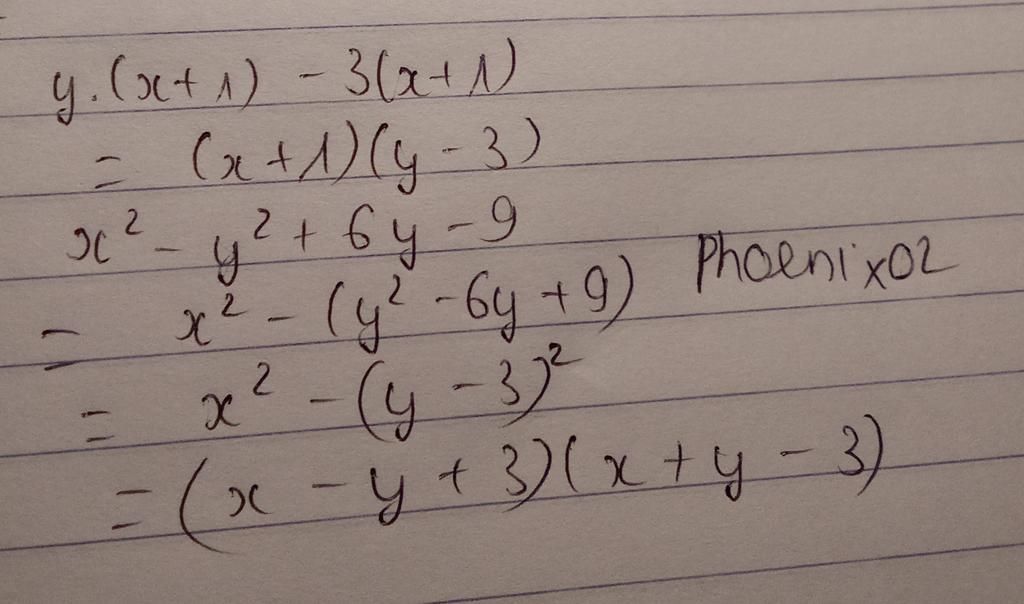 y.(x+1) - 3(x+1)
= (x+1)(y-3)
x² - y² + 6y - 9
= x² - (y² - 6y + 9) Phoenix02
= x² - (y - 3)²
= (x - y + 3)(x + y - 3)